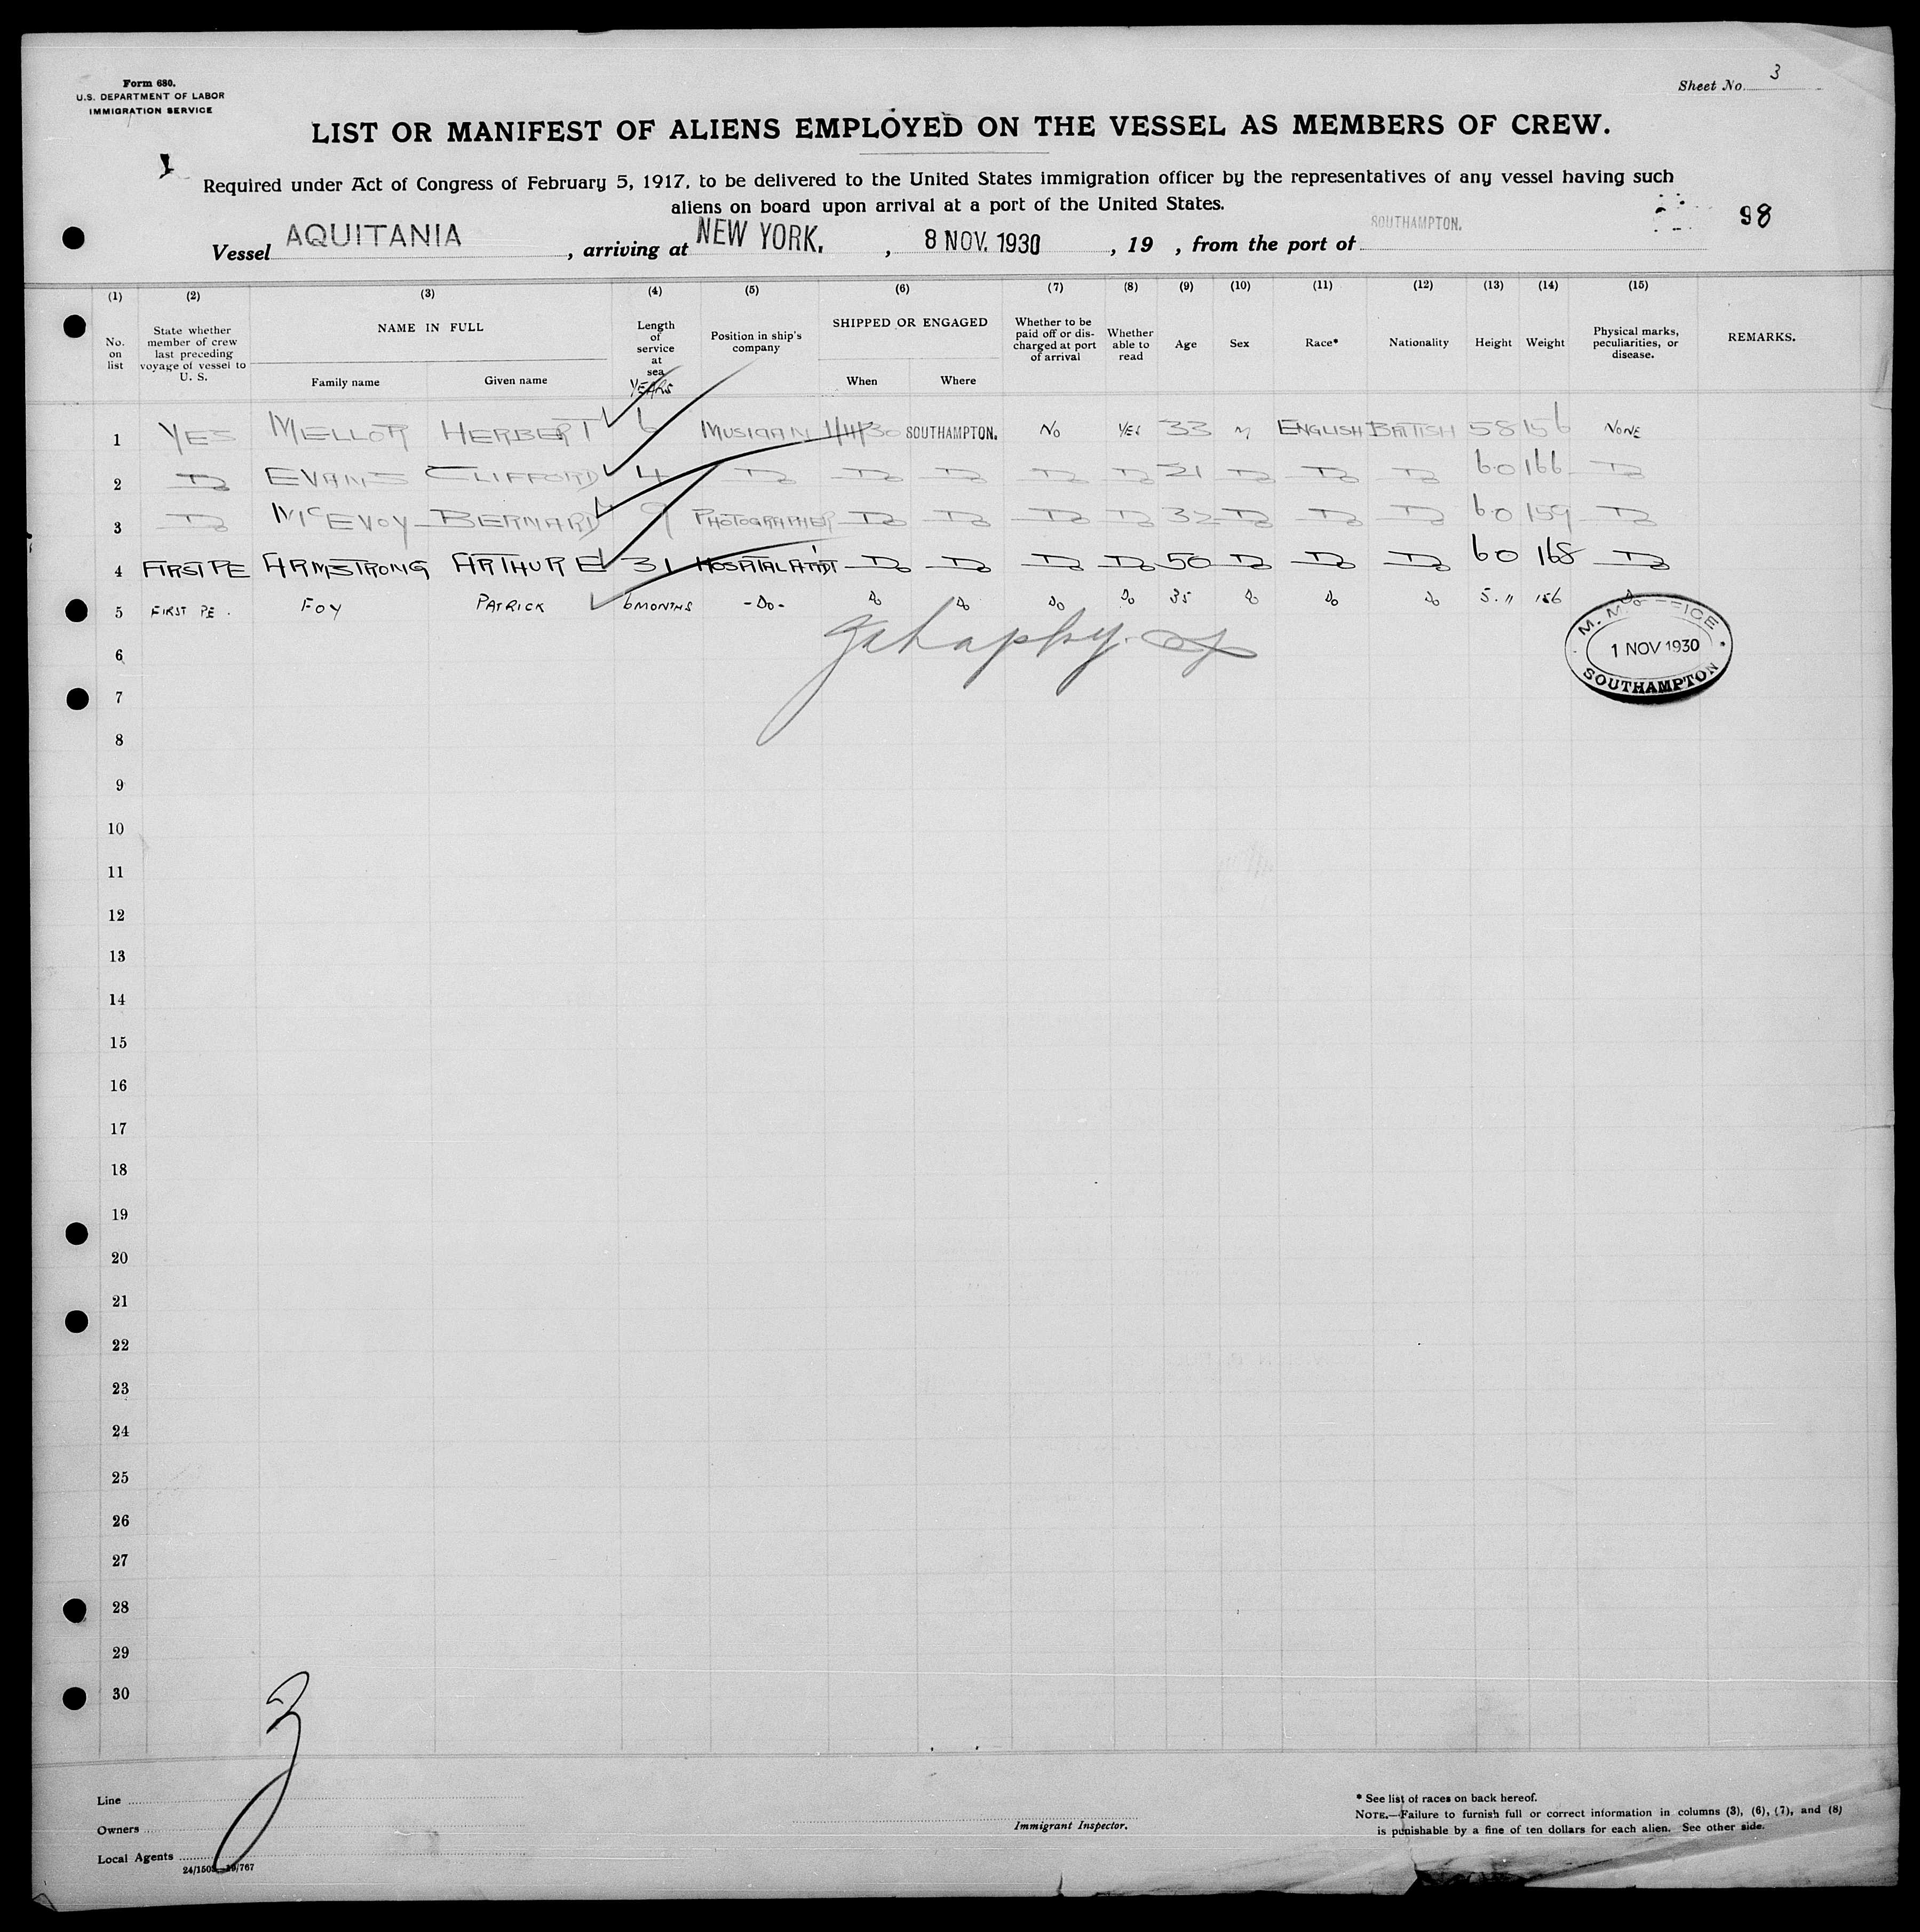 Form 680.
U.S. DEPARTMENT OF LABOR
IMMIGRATION SERVICE
Sheet No. 3
LIST OR MANIFEST OF ALIENS EMPLOYED ON THE VESSEL AS MEMBERS OF CREW.
Required under Act of Congress of February 5, 1917, to be delivered to the United States immigration officer by the representatives of any vessel having such
aliens on board upon arrival at a port of the United States.
98
Vessel AQUITANIA, arriving at NEW YORK., 8 NOV. 1930, 19 , from the port of SOUTHAMPTON.
(1) (2) (3) (4) (5) (6) (7) (8) (9) (10) (11) (12) (13) (14) (15)
No. on list
State whether member of crew last preceding voyage of vessel to U. S.
NAME IN FULL
Family name Given name
Length of service at sea
YEARS
Position in ship's company
SHIPPED OR ENGAGED
When Where
Whether to be paid off or discharged at port of arrival
Whether able to read
Age
Sex
Race*
Nationality
Height
Weight
Physical marks, peculiarities, or disease.
REMARKS.
1 YES MELLOR HERBERT 6 MUSICIAN 1/11/30 SOUTHAMPTON. NO YES 33 M ENGLISH BRITISH 58 156 NONE
2 Do EVANS CLIFFORD 4 Do Do Do Do Do 21 Do Do Do 60 166 Do
3 Do McEVOY BERNARD 9 PHOTOGRAPHER Do Do Do Do 32 Do Do Do 60 159 Do
4 FIRST PE ARMSTRONG ARTHUR E 31 HOSPITAL ATT'DT Do Do Do Do 50 Do Do Do 60 168 Do
5 FIRST PE. FOY PATRICK 6 MONTHS -Do- Do Do Do Do 35 Do Do Do 5.11 156 Do
6
7
8
9
10
11
12
13
14
15
16
17
18
19
20
21
22
23
24
25
26
27
28
29
30
1 NOV 1930
SOUTHAMPTON
3
Line
Owners
Local Agents
Immigrant Inspector.
* See list of races on back hereof.
NOTE.—Failure to furnish full or correct information in columns (3), (6), (7), and (8)
is punishable by a fine of ten dollars for each alien. See other side.